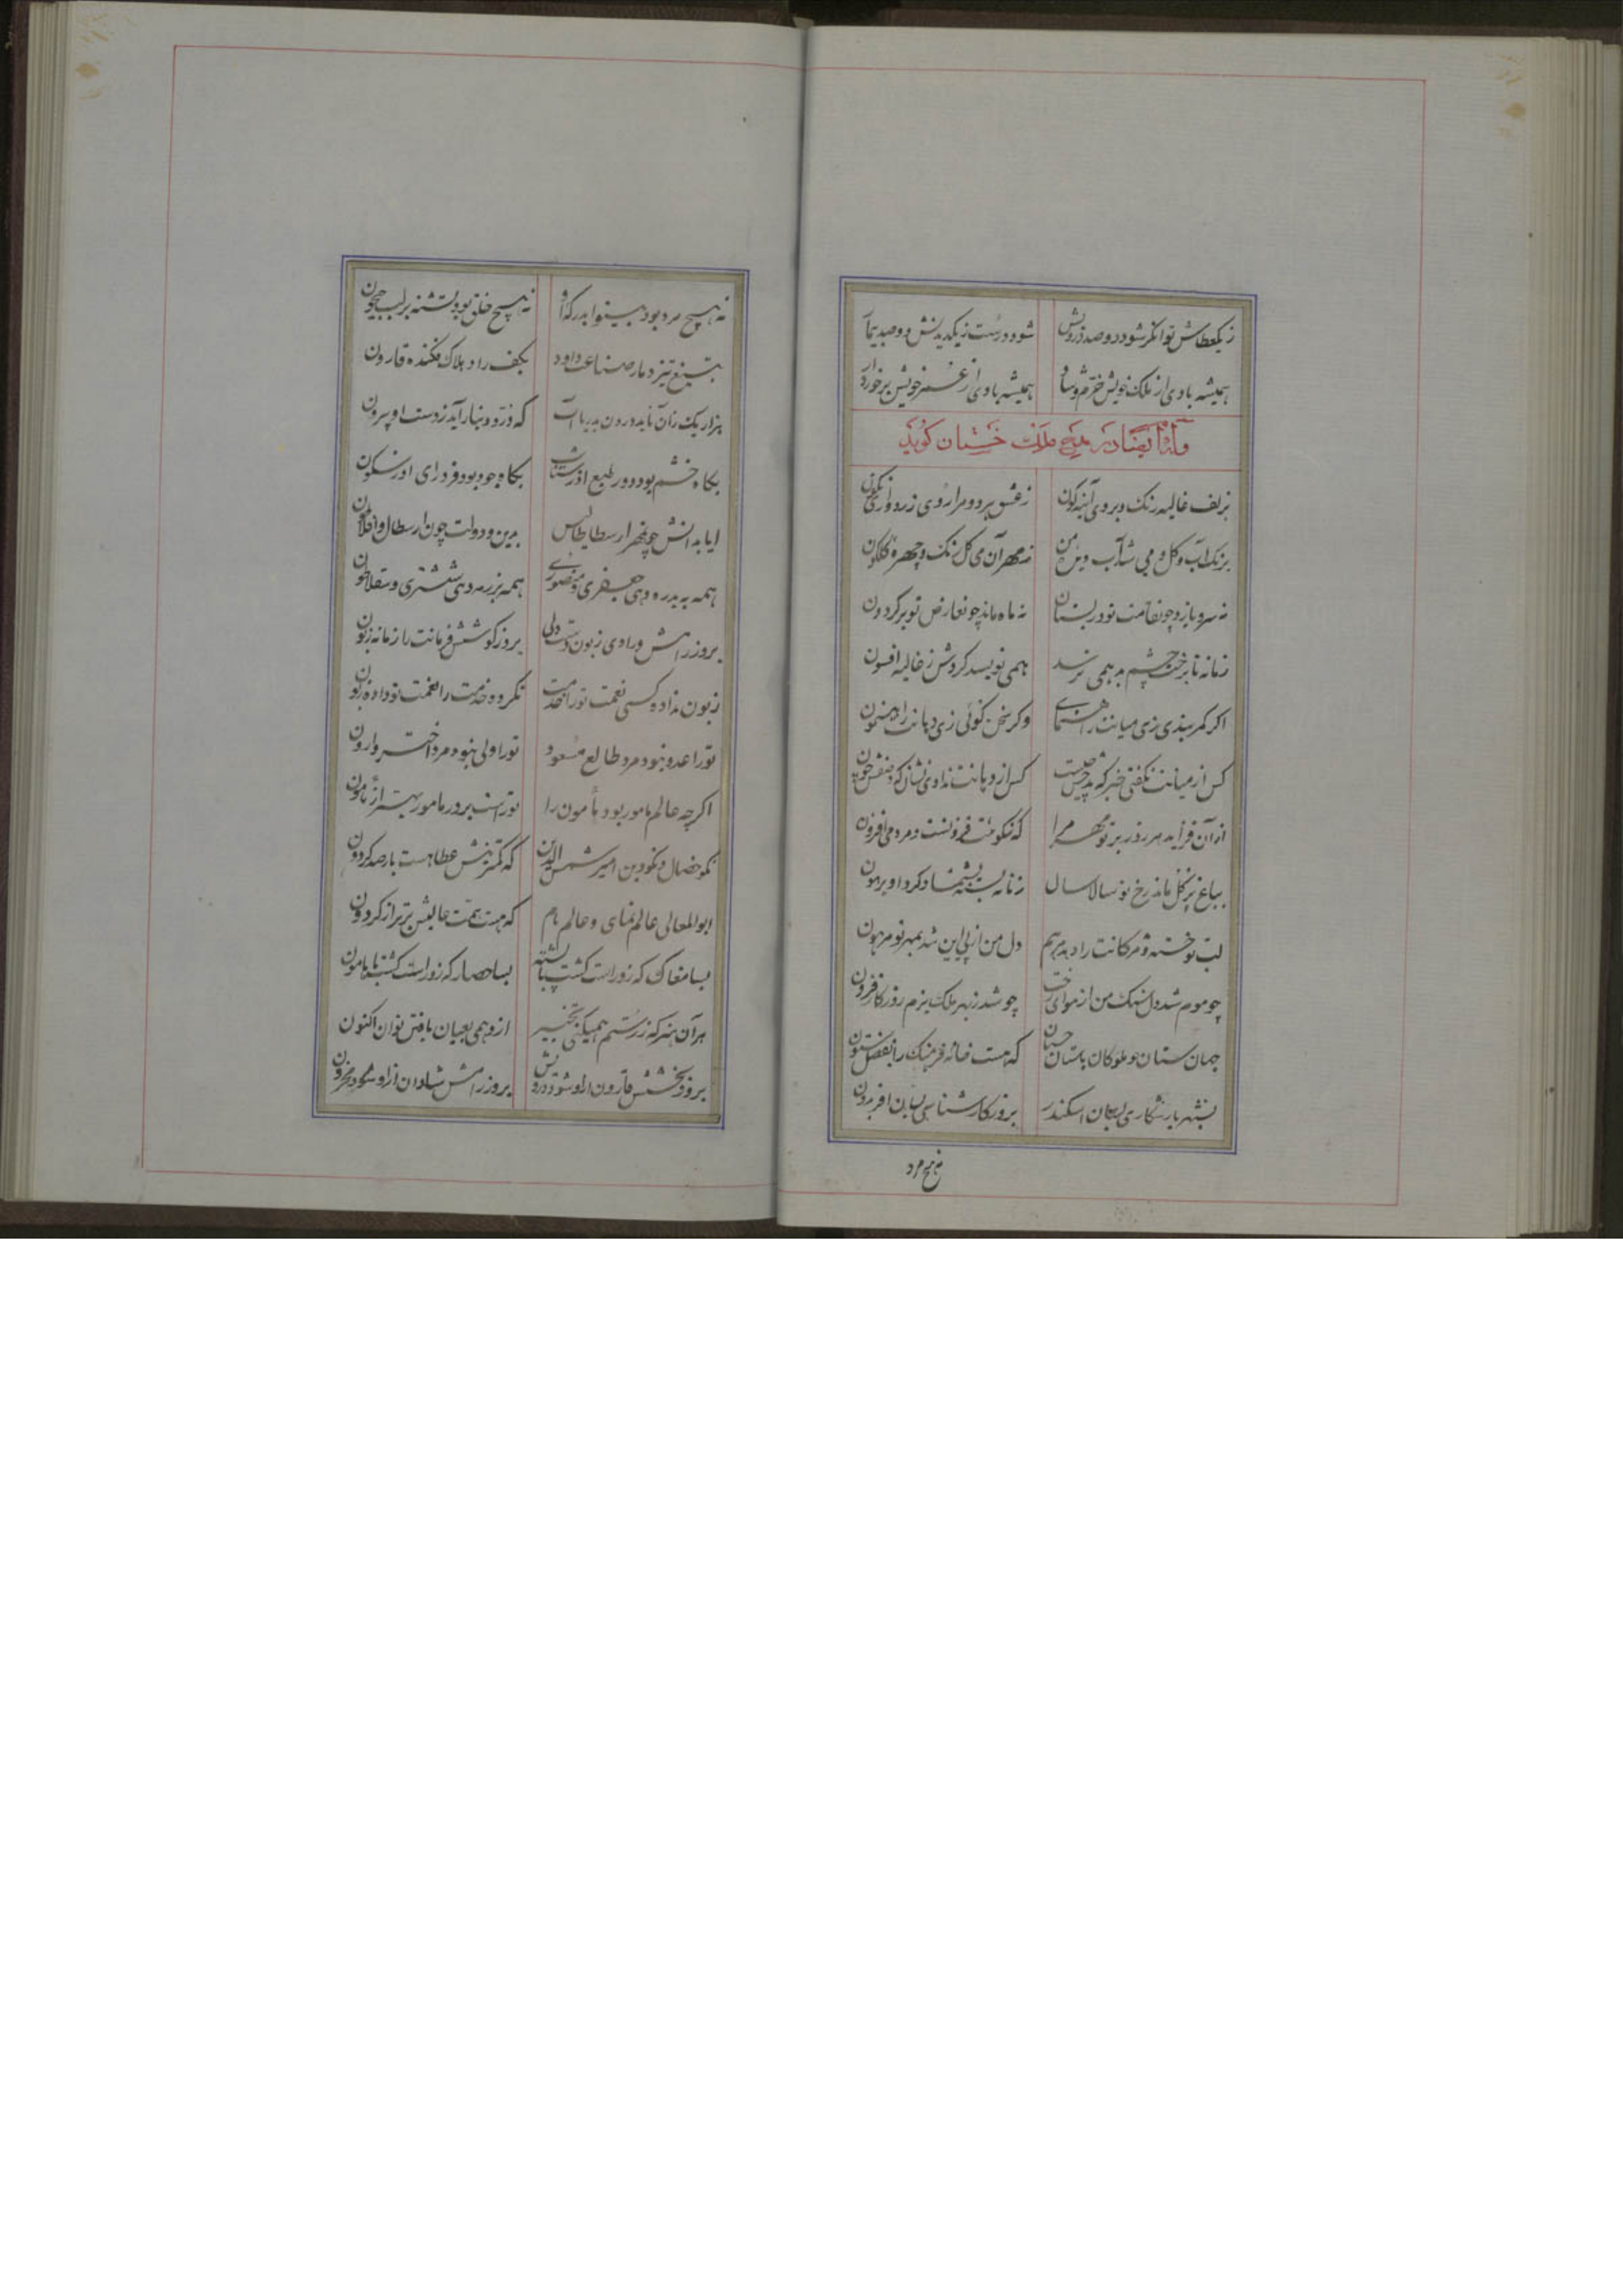 ز یکعطاش توانکر شود دو صد درویش شود درست ز یکدیدنش دو صد بیمار
همیشه بادی از ملک خویش خرم و شاد همیشه بادی از عز خویش برخوردار
وله ایضا در مدح ملک جستان کوید
بزلف غالیه رنک و بروی آینه کون ز عشق برد و مرا روی زرد و
برنک آب و کل و می شد آب دیده من ز مهر آن می کل رنک و چهره کلکون
نه سرو یازد چونقامت تو در بستان نه ماه ماند چونعارض تو بر کردون
زمانه تا برخت چشم بد همی نرسد همی نویسد کردش ز غالیه افسون
اکر کمر بندی زی میانت راهنمای وکر سخن کوئی زی دهانت راهنمون
کس از میانت نکفتی خبر که بر چیست کس از دهانت ندادی نشان که
از آن فزاید هر روز بر تو مهر مرا که نیکوئیت فزونست و مردمی افزون
بباغ پرکل ماند رخ تو سالاسال زمانه بسته بشمشاد کرد او برهون
لب تو خسته مژکانت را دهد مرهم دل من از پی این شد بمهر تو مرهون
چو موم شد دل سنک من از هوای رخت چو شد ز بهر ملک بزم روزکار فزون
جهان ستان و ملوکان باستان جستان که هست خانه فرهنک را بفضل ستون
بشهریار شکاری بسان اسکندر بروزکار شناسی بسان افریدون
نه هیچ مرد
نه هیچ مرد بود بینوا بدرکه او نه هیچ خلق بود تشنه بر لب جیحون
بتیغ تیز دمار صناعت داود بکف راد هلاک فکنده قارون
هزار یک زان ناید درون بدریا آب که زر و دینار آید ز دست او بیرون
بکاه خشم بود دور طبع او ز شتاب بکاه جود بود فرد رای او ز سکون
ایا بدانش چونفخر ارسطاطالیس بدین و دولت چون ارسطال و افلاطون
همه ببدره دهی جعفری و منصوری همه برزمه دهی ششتری و سقلاطون
بروز رامش و رادی زبون دست دلی بروز کوشش فرمانت را زمانه زبون
زبون نداده کسی نعمت تو را خدمت نکرده خدمت را نعمت تو داده زبون
تو را عدو نبود مرد طالع مسعود تو را ولی نبود مرد اختر وارون
اکر چه عالم مامور بود مأمون را تو راست بر در مامور بهتر از مأمون
نکو خصال و نکو دین امیر شمس الدین که کمترینش عطا هست بار صد کردون
ابوالمعالی عالم نمای و عالم نام که هست همت عالیش برتر از کردون
بسا مغاک که زو راست کشت با پشته بسا حصار که زو راست کشت با هامون
هر آن هنر که ز رستم همیکنی تخبیر ازو همی بعیان یافتن توان اکنون
بروز بخشش قارون ازو شود درویش بروز رامش شادان ازو شود محزون